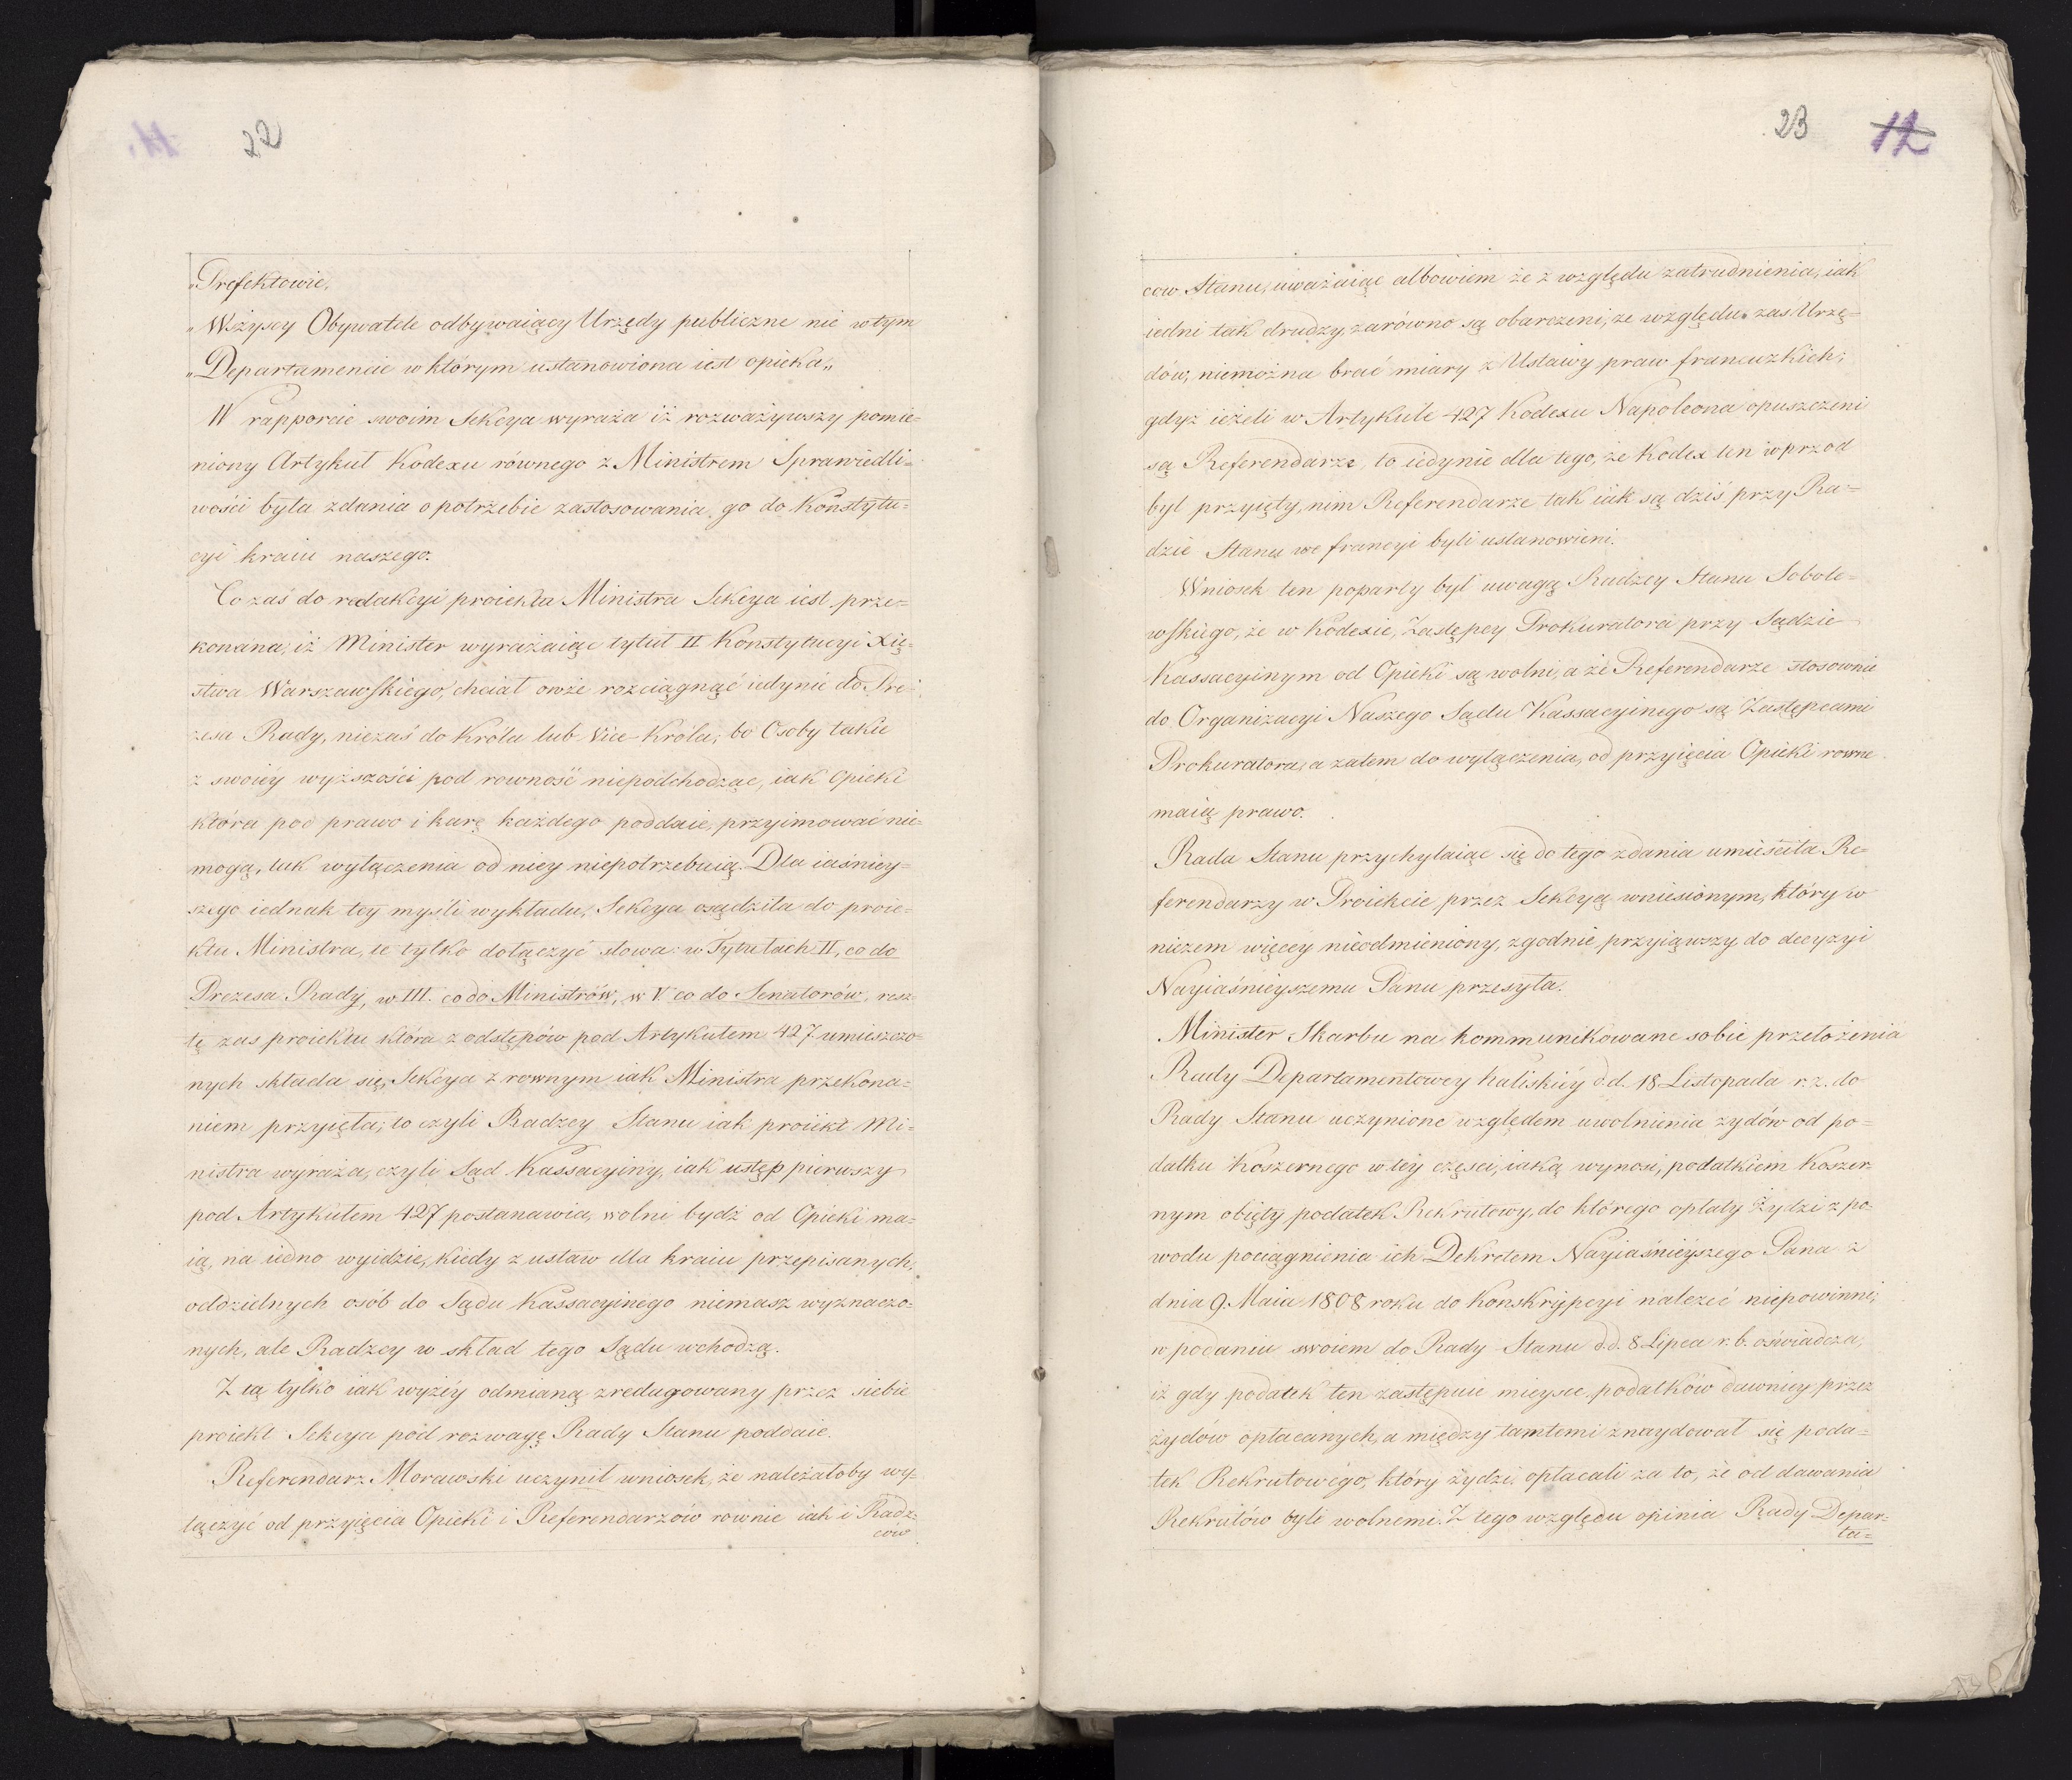 22
„Prefektowie,
„Wszyscy Obywatele odbywaiący Urzędy publiczne nie w tym
„Departamencie w którym ustanowiona iest opieka„
W rapporcie swoim Sekcya wyraża iż rozważywszy pomie=
niony Artykuł Kodexu równego z Ministrem Sprawiedli=
wości była zdania o potrzebie zastosowania go do Konstytu=
cyi kraiu naszego.
Co zaś do redakcyi proiektu Ministra Sekcya iest prze=
konana, iż Minister wyrażaiąc tytuł II Konstytucyi Xię=
stwa Warszawskiego, chciał owże rozciągnąć iedynie do Pre=
zesa Rady, niezaś do Króla lub Vice-Króla, bo Osoby takie
z swoiéy wyższości pod rowność niepodchodząc, iak Opieki
która pod prawo i karę każdego poddaie, przyimować nie=
mogą, tak wyłączenia od niey niepotrzebuią. Dla iaśniey=
szego iednak tey myśli wykładu, Sekcya osądziła do proie=
ktu Ministra, te tylko dołączyć słowa: w Tytułach II, co do
Prezesa Rady, w III. co do Ministrów, w V co do Senatorów, resz=
tę zas proiektu która z odstępów pod Artykułem 427 umieszczo=
nych składa się, Sekcya z rownym iak Ministra przekona=
niem przyięła; to czyli Radzcy Stanu iak proiekt Mi=
nistra wyraża, czyli Sąd Kassacyiny, iak ustęp pierwszy
pod Artykułem 427 postanawia, wolni bydź od Opieki ma=
ią, na iedno wyidzie, kiedy z ustaw dla kraiu przepisanych,
oddzielnych osób do Sądu Kassacyinego niemasz wyznaczo=
nych, ale Radzcy w skład tego Sądu wchodzą.
Z tą tylko iak wyżéy odmianą zredagowany przez siebie
proiekt Sekcya pod rozwagę Rady Stanu poddaie.
Referendarz Morawski uczynił wniosek, że należałoby wy=
łączyć od przyięcia Opieki i Referendarzów rownie iak i Radz=
cow
23 12
cow Stanu, uważaiąc albowiem że z względu zatrudnienia, iak
iedni tak drudzy, zarówno są obarczeni, ze względu zas Urzę=
dów, niemożna brać miary z Ustawy praw francuzkich;
gdyż ieżeli w Artykule 427 Kodexu Napoleona opuszczeni
są Referendarze, to iedynie dla tego, że Kodex ten wprzod
był przyięty, nim Referendarze tak iak są dziś przy Ra=
dzie Stanu we francyi byli ustanowieni.
Wniosek ten poparty był uwagą Radzcy Stanu Sobole=
wskiego, że w Kodexie, Zastępcy Prokuratora przy Sądzie
Kassacyinym od Opieki są wolni, a że Referendarze stosownie
do Organizacyi Naszego Sądu Kassacyinego są Zastępcami
Prokuratora, a zatem do wyłączenia, od przyięcia Opieki rowne
maią prawo.
Rada Stanu przychylaiąc się do tego zdania umieściła Re=
ferendarzy w Proiekcie przez Sekcyą wniesionym, który w
niczem więcey nieodmieniony, zgodnie przyiąwszy do decyzyi
Nayiaśnieyszemu Panu przesyła.
Minister Skarbu na kommunikowane sobie przełożenia
Rady Departamentowey kaliskiéy d.d. 18 Listopada r. z. do
Rady Stanu uczynione względem uwolnienia żydów od po=
datku koszernego w tey części, iaką wynosi, podatkiem Koszer=
nym obięty podatek Rekrutowy, do którego opłaty Żydzi z po=
wodu pociągnienia ich Dekretem Nayiaśniéyszego Pana z
dnia 9 Maia 1808 roku do Konskrypcyi należeć niepowinni;
w podaniu swoiem do Rady Stanu d.d. 8 Lipca r. b. oświadcza,
iż gdy podatek ten zastępuie mieysce podatków dawniey przez
żydów opłacanych, a między tamtemi znaydował się poda=
tek Rekrutowego, który Żydzi opłacali za to, że od dawania
Rekrutów byli wolnemi. Z tego względu opinia Rady Depar=
ta=